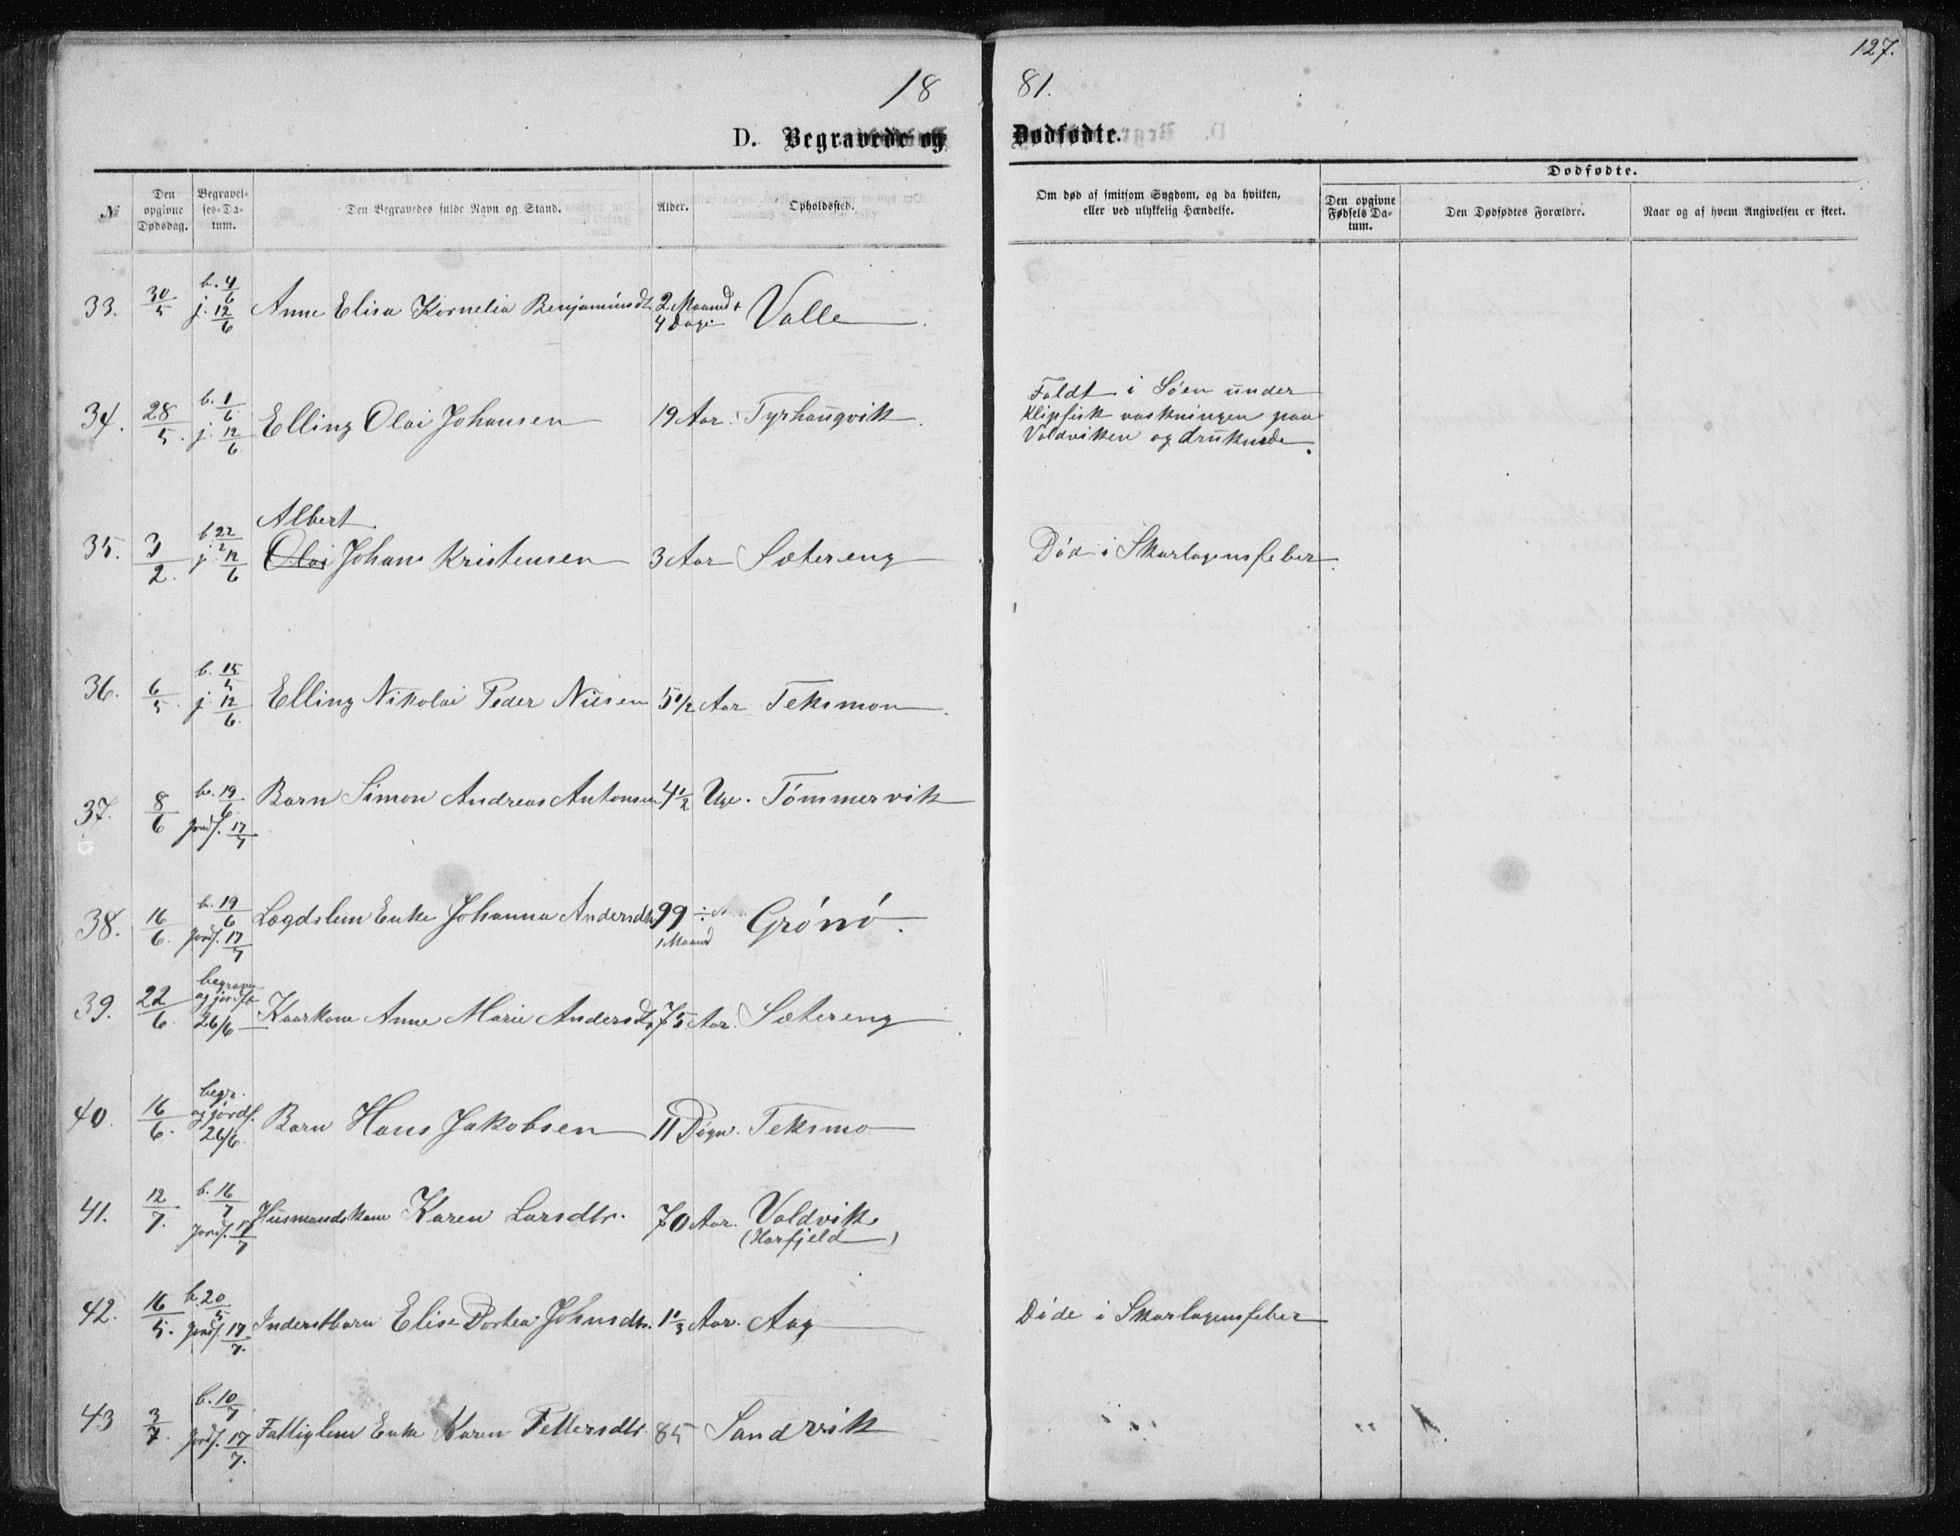 127.
18 81.
D. Begravede og Dødfødte.
№
Den opgivne Dødsdag.
Begravelses-Datum.
Den Begravedes fulde Navn og Stand.
Alder.
Opholdssted.
Om død af smitsom Sygdom, og da hvilken, eller ved ulykkelig Hændelse.
Dødfødte.
Den opgivne Fødsels Datum.
Den Dødfødtes Forældre.
Naar og af hvem Angivelsen er skeet.
33. 30/5 b. 4/6 j. 12/6 Anne Elisa Kornelia Benjaminsdt. 2 Maaned + 4 Dage Valle
34. 28/5. b. 1/6 j. 12/6 Elling Olai Johansen 19 Aar. Tyrhaugvik.
Faldt i Søen under
Klipfisk vaskningen paa
Valdviken og druknede.
Albert
35. 3/2. b. 22/2 j. 12/6 Olai Johans Kristensen 3 Aar Sætereng
Død i Skarlagensfeber.
36. 6/5. b. 15/5 j. 12/6. Elling Nikolai Peder Nilsen 5 1/2 Aar Teksmon
37. 8/6 b. 19/6 jordf. 17/7 Barn Simon Andreas Antonsen 4 1/2 Uge. Tömmervik
38. 16/6. b. 19/6 jordf. 17/7 Lægdslem Enke Johanna Andersdtr 99 ÷ 1 Maaned Grönö.
39. 22/6. begravn og jordf. 26/6 Kaarkone Anne Marie Andersdt. 75 Aar. Sætereng
40. 16/6. begr. og jordf. 26/6. Barn Hans Jakobsen 11 Døgn. Teksmo
41. 12/7. b. 16/7 jordf. 17/7 Husmandskone Karen Larsdtr. 70 Aar. Valdvik
(Harfjeld)
42. 16/5. b. 20/5 jordf. 17/7. Inderstbarn Elise Dortea Johnsdtr. 1 1/3 Aar. Aag
Døde i Skarlagensfeber
43 3/7 b. 10/7. jordf. 17/7. Fattiglem Enke Karen Pettersdtr. 85 Sandvik